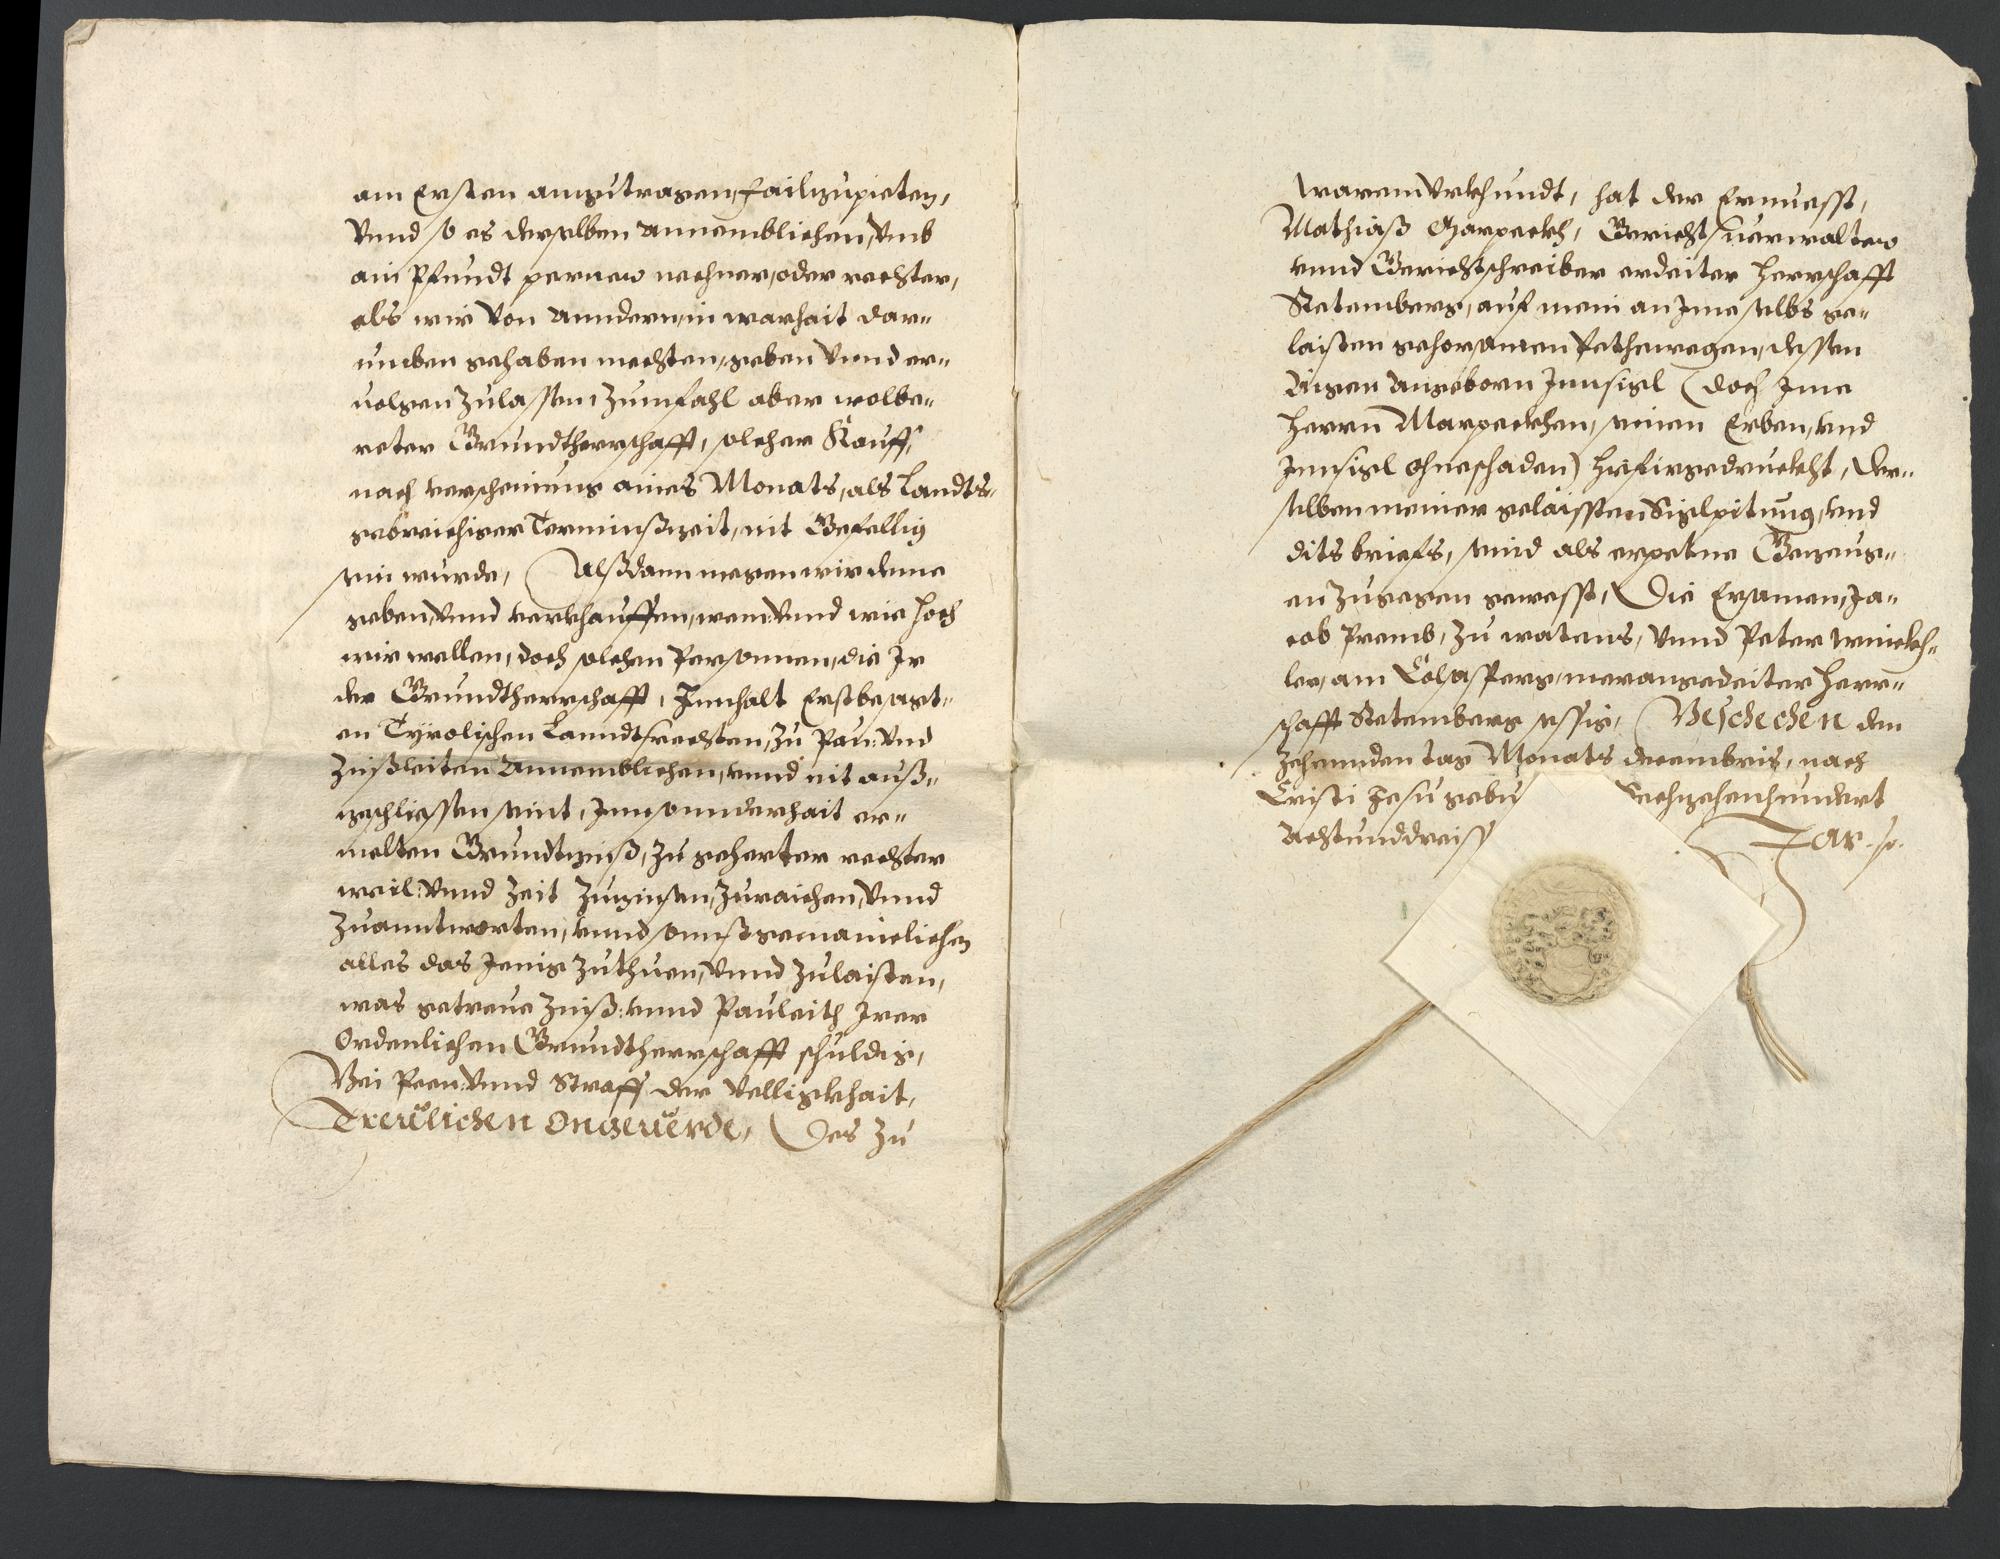 am Ersten anzutragen, failzupieten,
Vnnd so es derselben Annemblichen, Vmb
ain Pfundt perner nechner, oder rechter,
als wir Von Anndern, in warhait dar-
umben gehaben mechten, geben Vnnd er-
uolgen Zulassen, Zumfahl aber wolbe-
reter Grundtherrschafft, solcher Kauff,
nach verscheinung aines Monats, als Landts-
gebreichiger Terminßzeit, nit Gefellig
sein wurde, Alßdann megen wir denne
geben, Vnnd verkhauffen, wem, Vnnd wie hoch
wir wellen, doch solchen Personnen, die Ir
der Grundtherrschafft, Innhalt Erstbesagt-
en Tyrolischen Lanndtsrechten, Zu Pau: Vnd
Zinßleiten Annemblichen, vnnd nit auß-
geschlossen seint, Innsonnderhait er-
melten Grundtzinß, Zu geherter rechter
weil: Vnnd Zeit Zuzinsen, Zuraichen, Vnnd
Zuanntworten, vnnd sonnst gemainelichen
alles das Jenig Zuthuen, Vnnd Zulaisten,
was getreue Zinß: vnnd Pauleith Irer
Ordenlichen Grundtherrschafft schuldig,
Bei Peen: Vnnd Straff der Velligkhait,
Trewlichen Ongeuerde, Des Zu
warem Vrkhundt, hat der Ernuesst,
Mathiaß Marpeckh, Gerichtsverwalter
vnnd Gerichtschreiber erdeiter Herrschafft
Retenberg, auf mein an Ime selbs ge-
laisten gehorsamen Pethewegen, dessen
Aigen Angeborn Innsigl (doch Ime
Herrn Marpeckhen, seinen Erben, vnd
Innsigl ohneschaden) hiefirgedruckht, Der-
selben meiner gelaissten Siglpitung, vnd
dits briefs, seind als erpetne Gezeug-
en Zugegen gewesst, Die Ersamen, Ja-
cob Premb, Zu watens, Vnnd Peter
ler, am merangedeiter Herr-
schafft Retenberg sessig, Beschechen den
Zehennden tag Monats decembris, nach
Cristi Jesu gebu Sechzehenhundert
Achtunddreiss Jar.